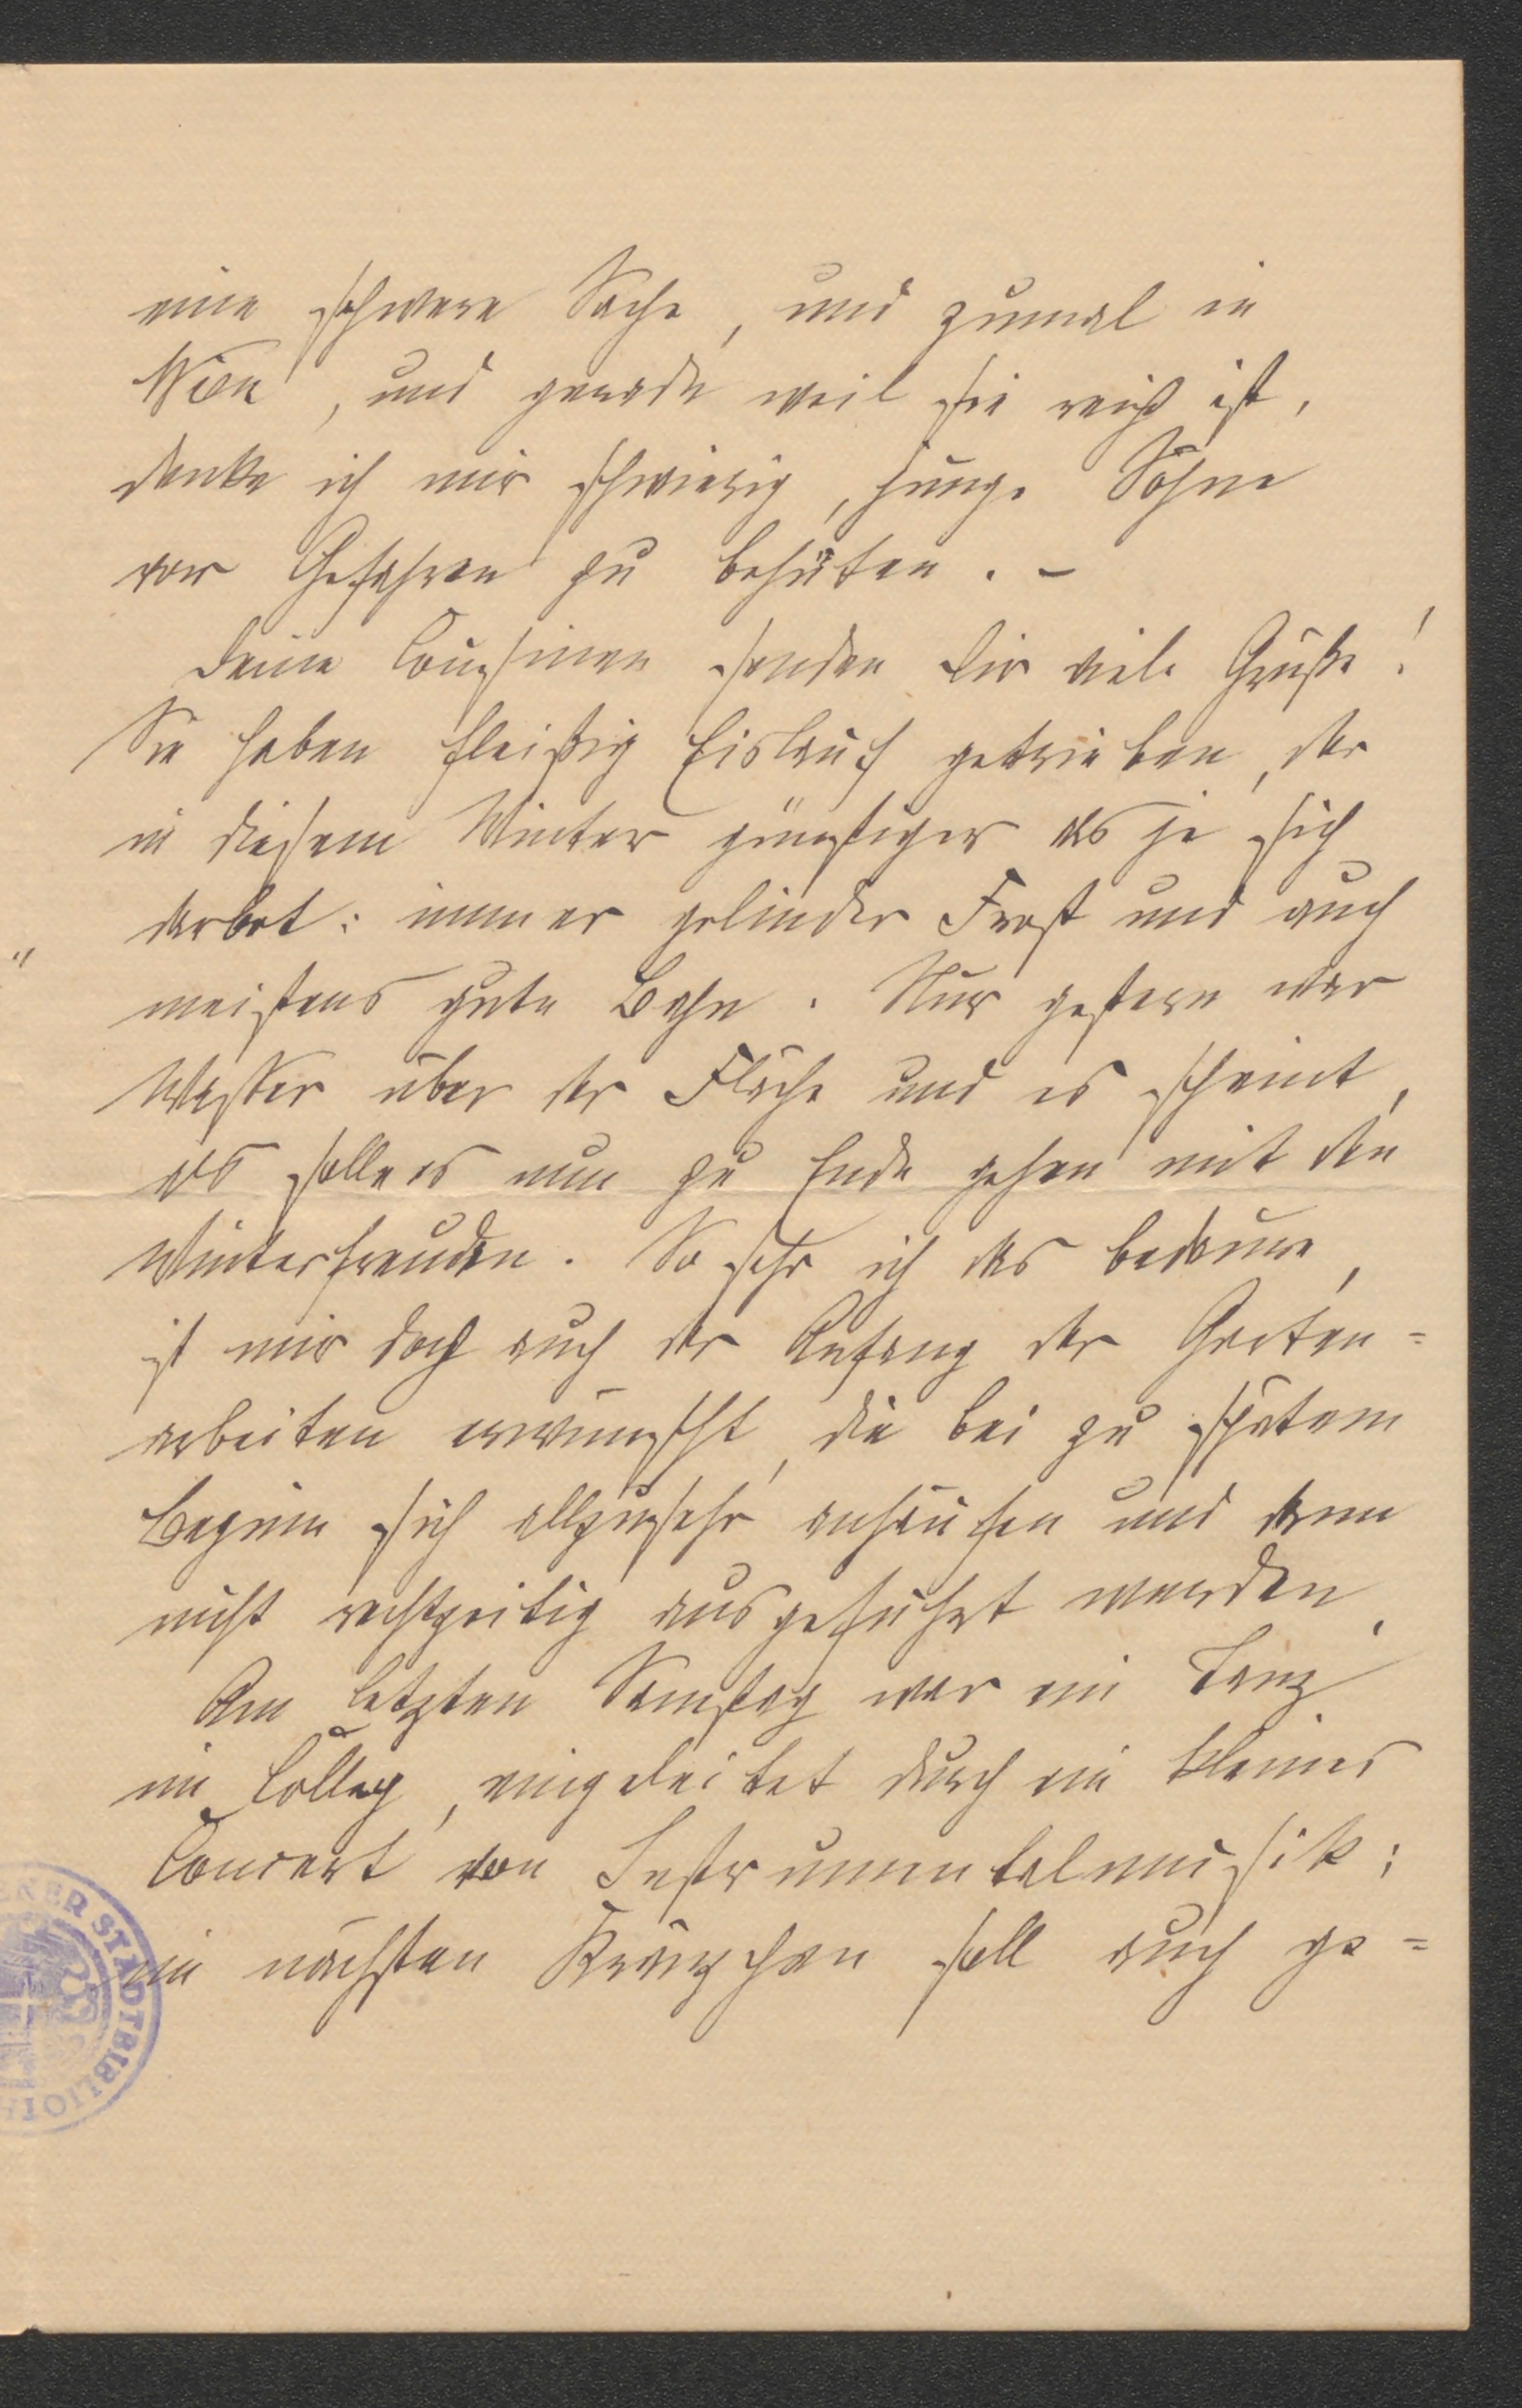 eine schwere Sache, und zumal in
Wien, und gerade weil sie reich ist,
denke ich mir schwierig, junge Söhne
vor Gefahren zu behüten. –
Deine Cousinen senden Dir viele Grüße!
Sie haben fleißig Eislauf getrieben, der
in diesem Winter günstiger als je sich
darbot: immer gelinder Frost und auch
meistens gute Bahn. Nur gestern war
Wasser über der Fläche und es scheint,
als solle es nun zu Ende gehen mit den
Winterfreuden. So sehr ich das bedaure,
ist mir doch auch der Anfang der Garten=
arbeiten erwünscht, die bei zu spätem
Beginn sich allzusehr anhäufen und dann
nicht rechtzeitig ausgeführt werden.
Am letzten Samstag war ein Tanz
im Colleg, eingeleitet durch ein kleines
Concert von Instrumentalmusik;
im nächsten Kränzchen soll auch ge=
STADTBIBLIOTH